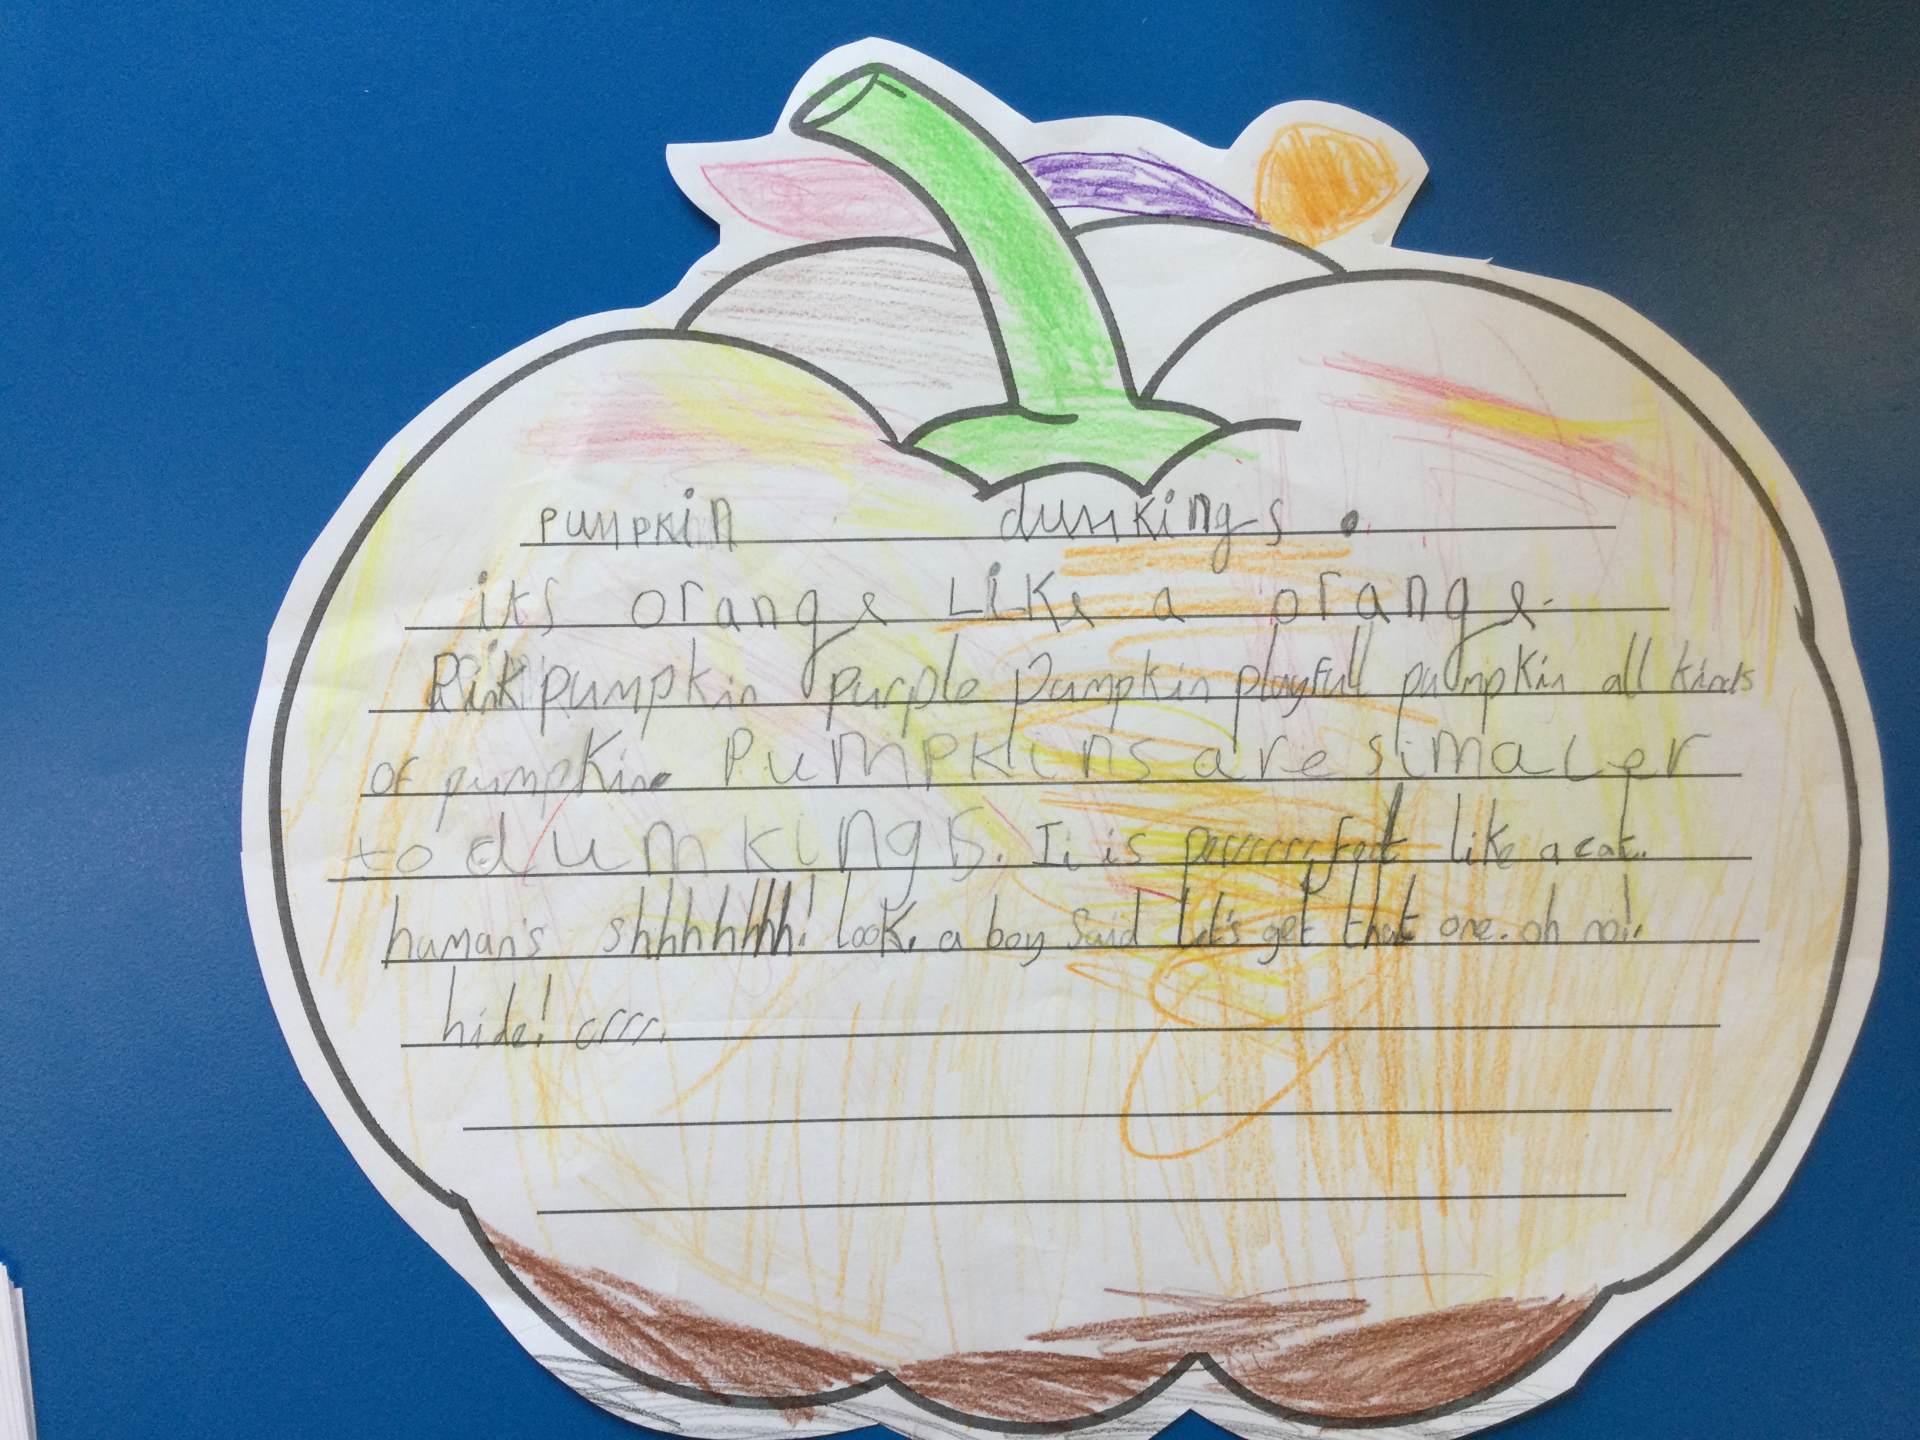 pumpkin dumkings.
its orange like a orange.
Pink pumpkin purple Pumpkin playfull pumpkin all kinds
of pumpkin. Pumpkins are simaler
to dumkings. Ii is purrrrrfect like a cat.
human's shhhhhhh! look. a boy said let's get that one. oh no!.
hide! crrr.